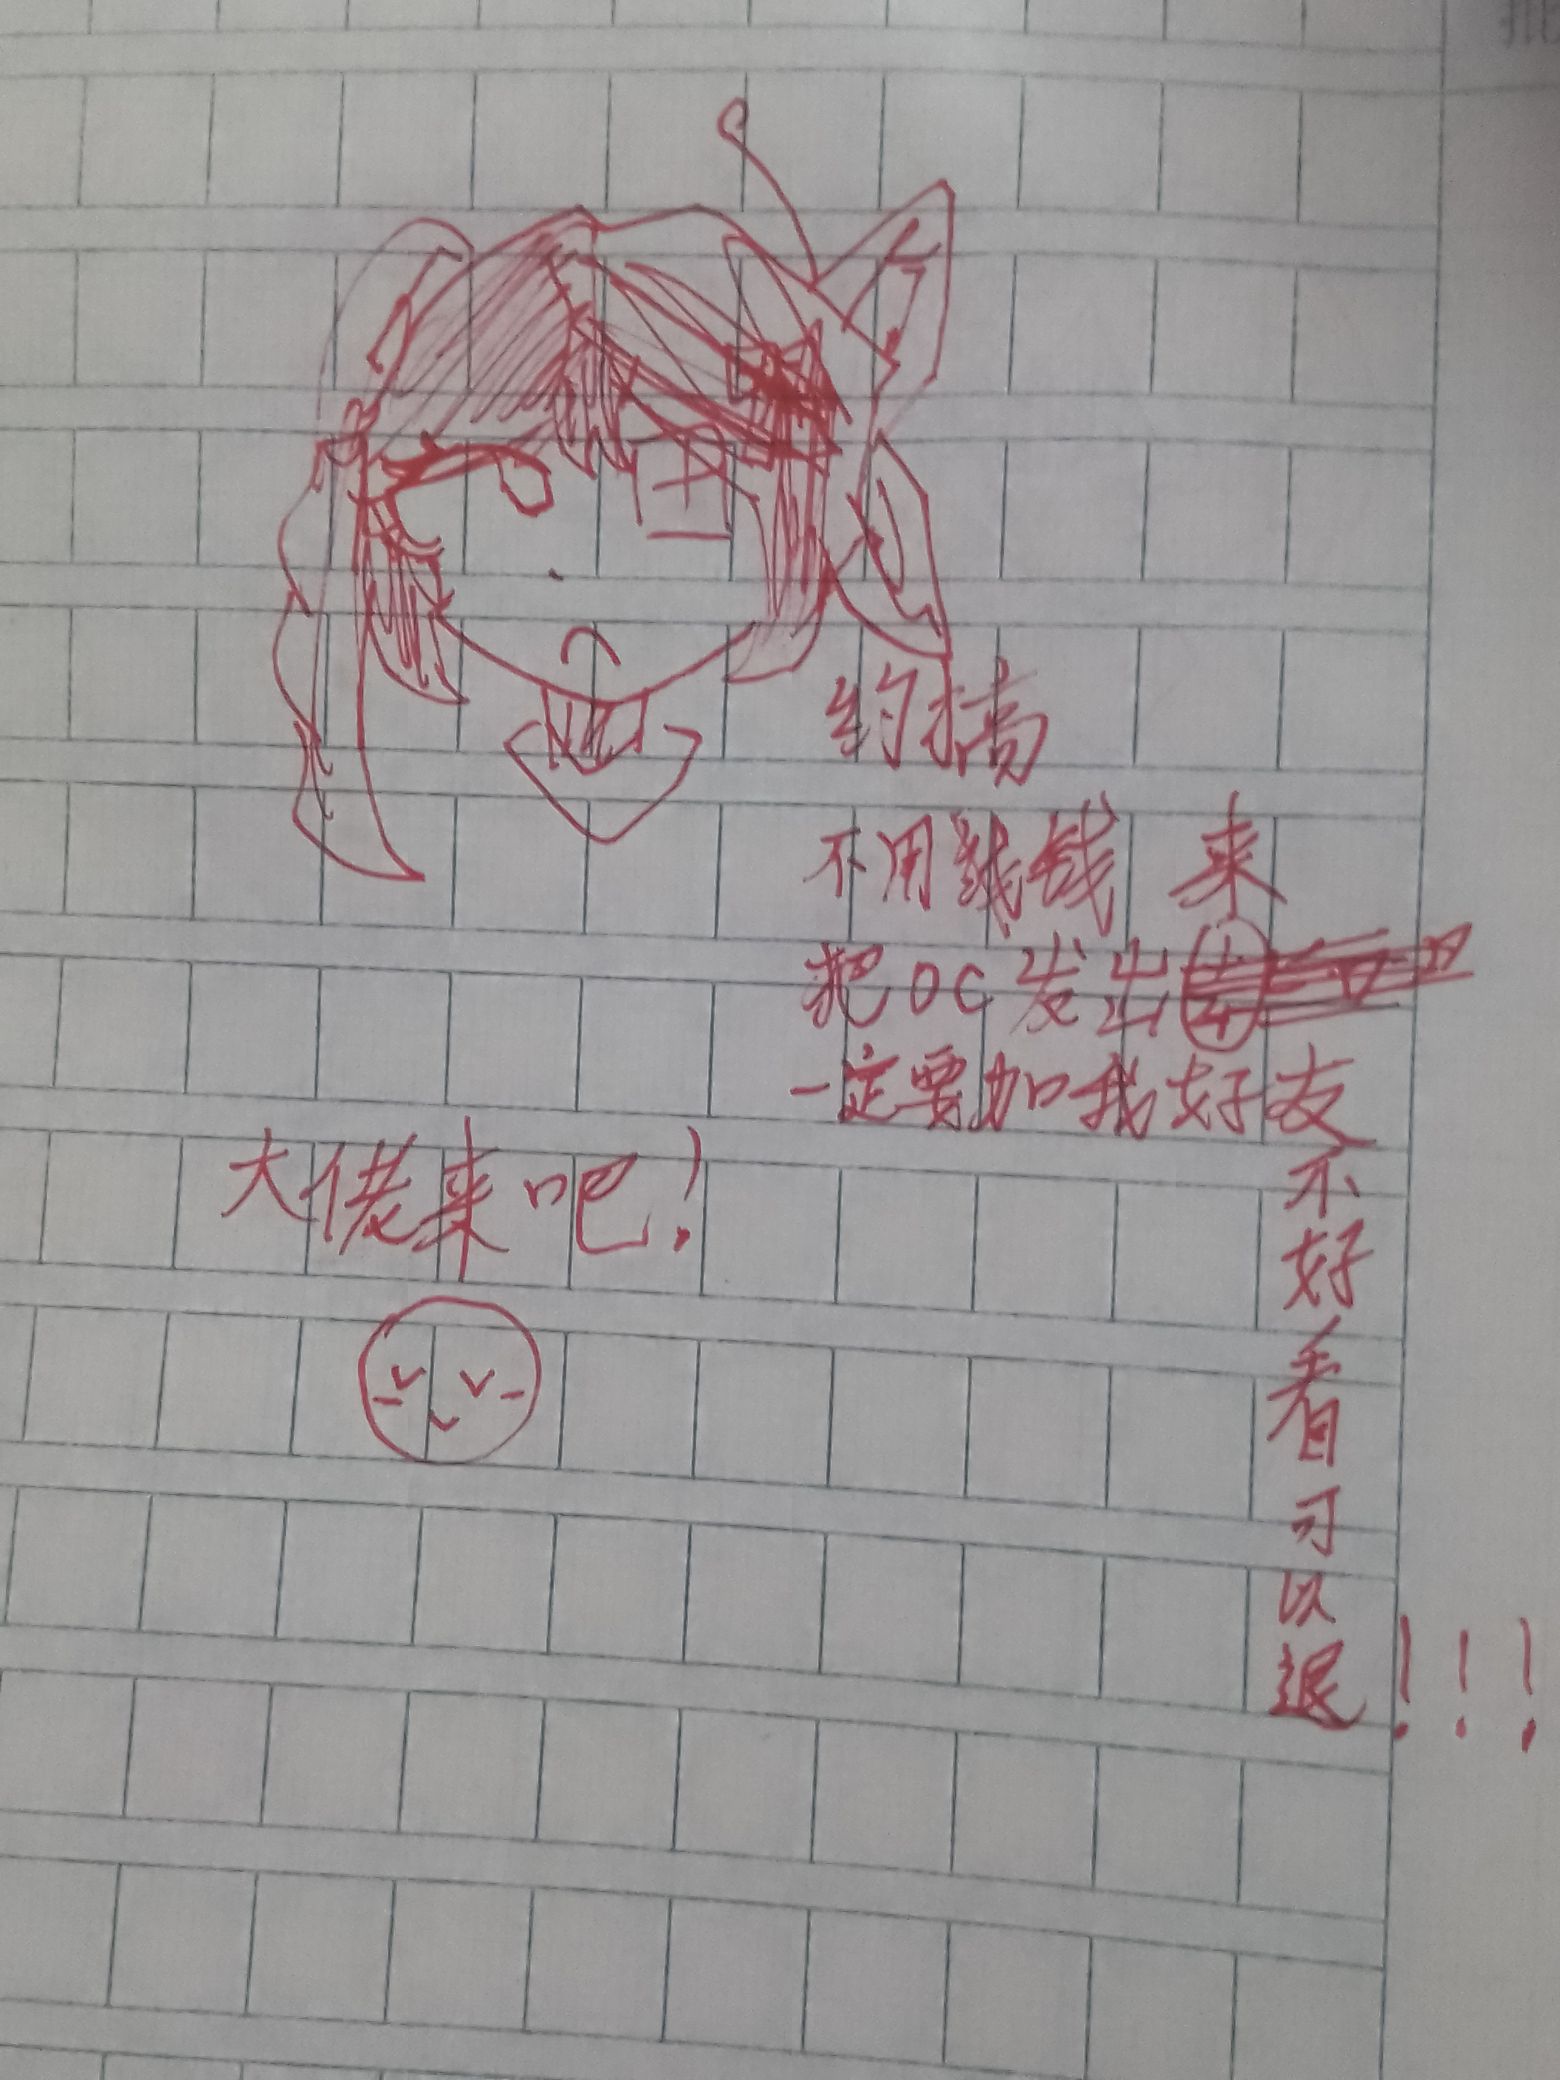 约搞
不用钱钱 来
把OC发出
一定要加我好友
不好看可以退!!!
大佬来吧!